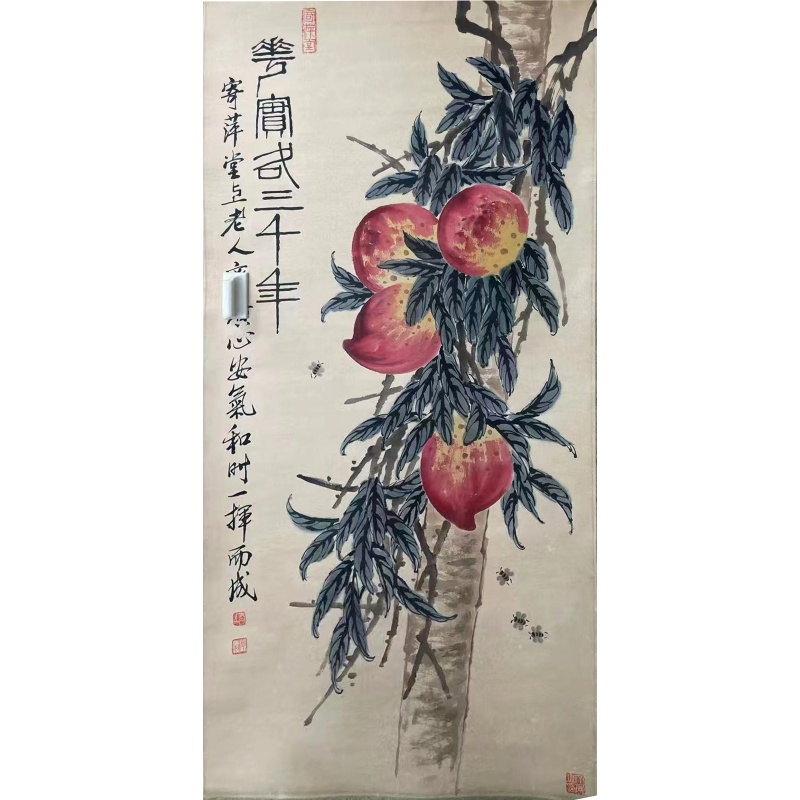 華實各三千年
寄萍堂上老人心安氣和時一揮而成